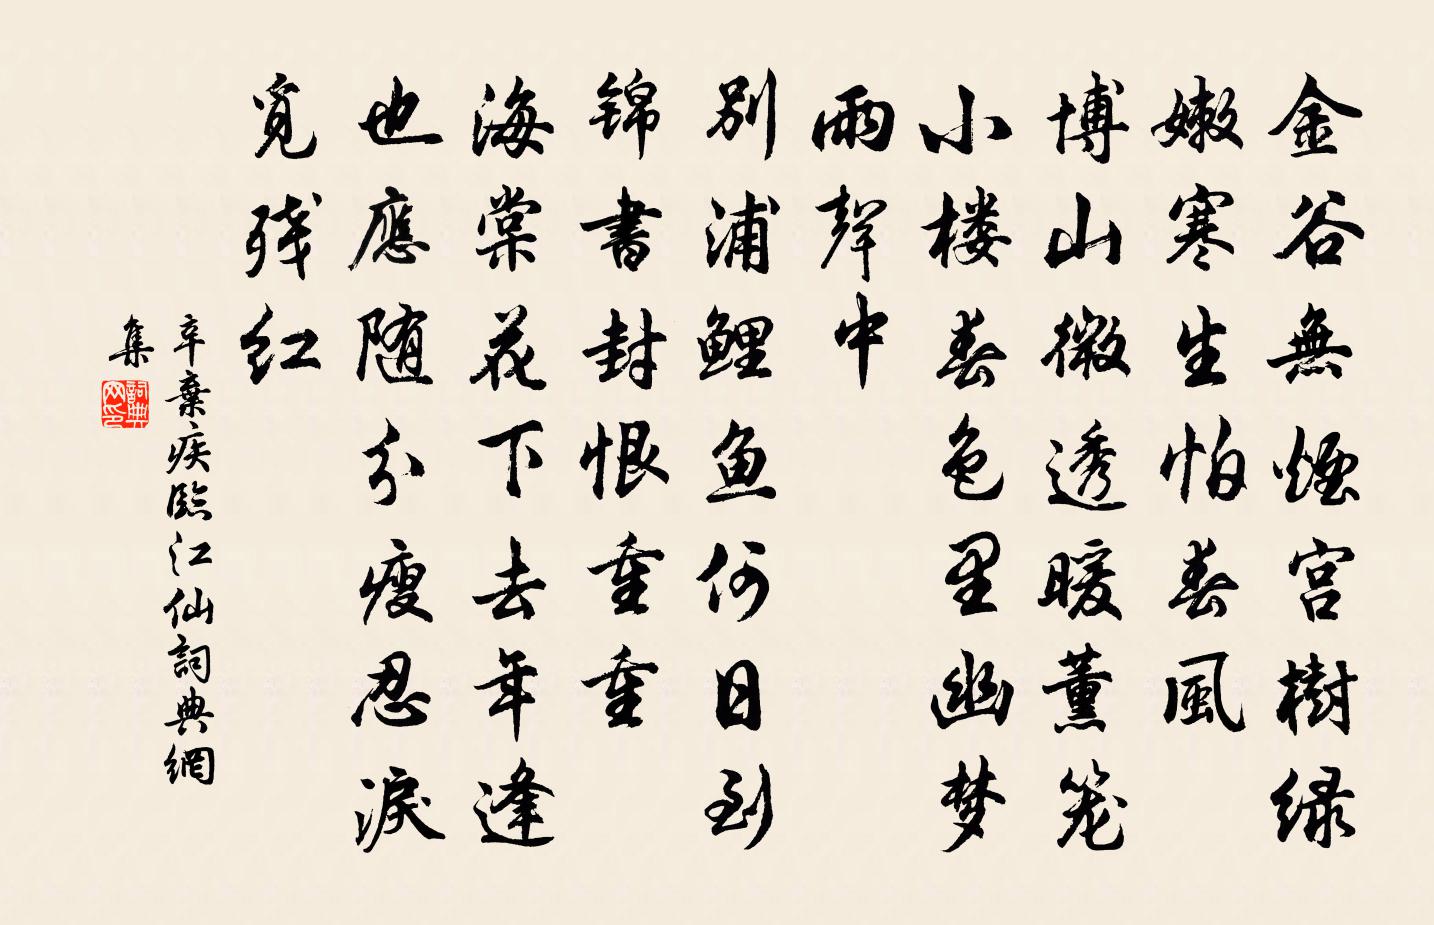 金谷無煙宫樹绿
嫩寒生怕春風
博山微透暖薰笼
小楼春色里幽梦
雨聲中
别浦鲤魚何日到
锦書封恨重重
海棠花下去年逢
也應随分瘦忍淚
覓残红
辛棄疾臨江仙詞典網
集
詞典网印